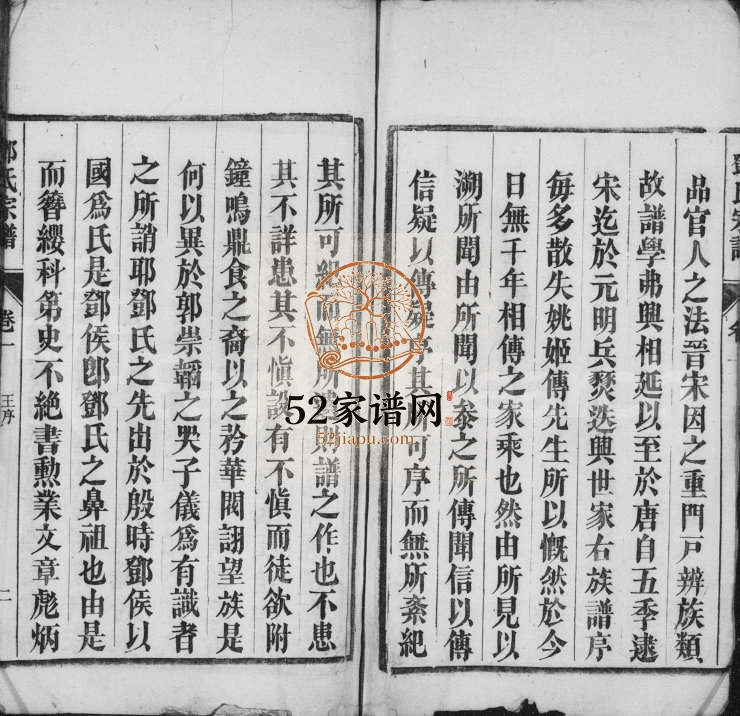 品官人之法晉宋因之重門戸辨族類
故譜學弗興相延以至於唐自五季逮
宋迄於元明兵燹迭興世家右族譜序
每多散失姚姬傳先生所以慨然於今
日無千年相傳之家乘也然由所見以
溯所聞由所聞以叅之所傳聞信以傳
信疑以傳疑序其可序而無所紊紀
其所可紀而無所則譜之作也不患
其不詳患其不愼設有不愼而徒欲附
鐘鳴鼎食之裔以之矜華閥詡望族是
何以異於郭崇韜之哭子儀爲有識者
之所誚耶鄧氏之先出於殷時鄧侯以
國爲氏是鄧侯卽鄧氏之鼻祖也由是
而簪纓科第史不絕書勲業文章彪炳
鄧氏宗譜
卷一
王序
二
52家谱网
52jiapu.com